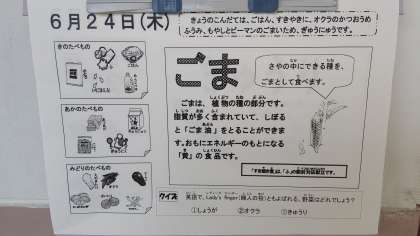 6月24日(木)
きょうのこんだては、ごはん、すきやきに、オクラのかつおうめ
ふうみ、もやしとピーマンのごまいため、ぎゅうにゅうです。
きのたべもの
あかのたべもの
みどりのたべもの
ごま
さやの中にできる種を、
ごまとして食べます。
ごまは、植物の種の部分です。
脂質が多く含まれていて、しぼる
と「ごま油」をとることができま
す。おもにエネルギーのもとになる
「黄」の食品です。
クイズ
英語で、Lady's finger(婦人の指)ともよばれる、野菜はどれでしょう?
①しょうが ②オクラ ③きゅうり